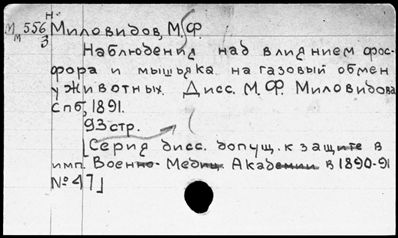 н.
М 556 Миловидов, М.Ф.
М 3
Наблюдения над влиянием фос-
фора и мышьяка на газовый обмен
у животных. Дисс. М.Ф. Миловидова
Спб, 1891.
93 стр.
[Серия дисс. допущ. к защите в
имп. Военно-Медиц. Академии в 1890-91
№ 47]